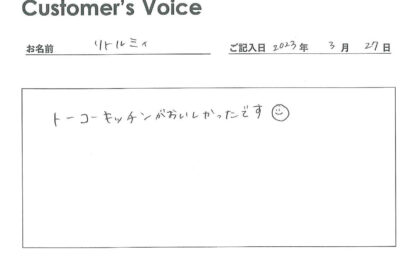 Customer's Voice
お名前 リトルミイ ご記入日 2023年 3月 27日
トーコーキッチンがおいしかったです☺